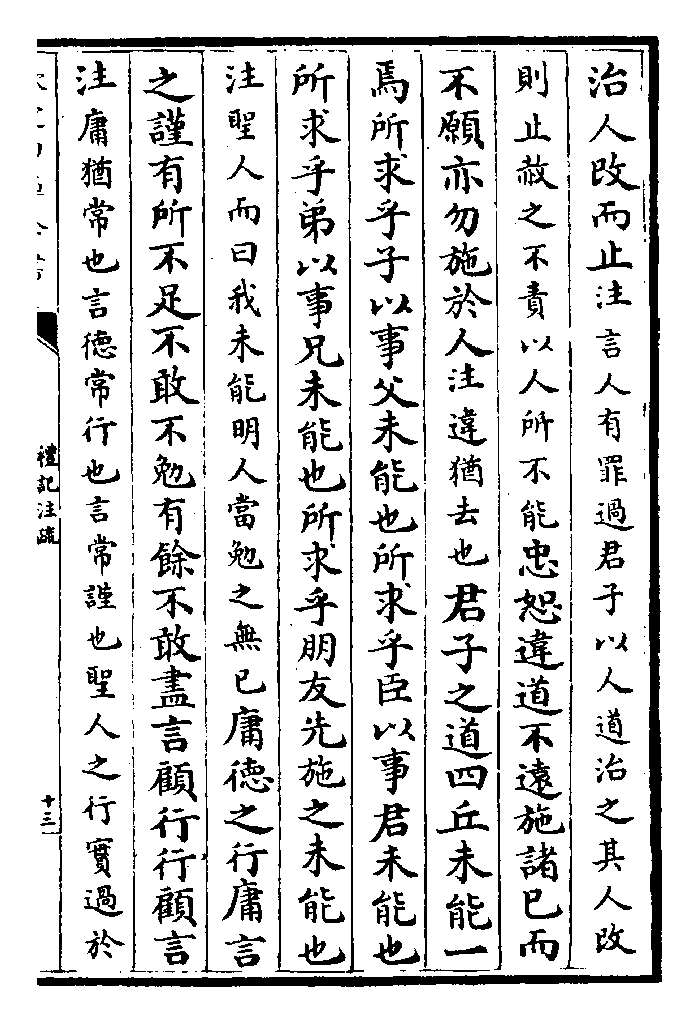 治人改而止注言人有罪過君子以人道治之其人改
則止赦之不責以人所不能忠恕違道不逺施諸已而
不願亦勿施於人注違猶去也君子之道四丘未能一
焉所求乎子以事父未能也所求乎臣以事君未能也
所求乎弟以事兄未能也所求乎朋友先施之未能也
注聖人而曰我未能明人當勉之無已庸徳之行庸言
之謹有所不足不敢不勉有餘不敢盡言顧行行顧言
注庸猶常也言徳常行也言常謹也聖人之行實過於
禮記注疏
十三